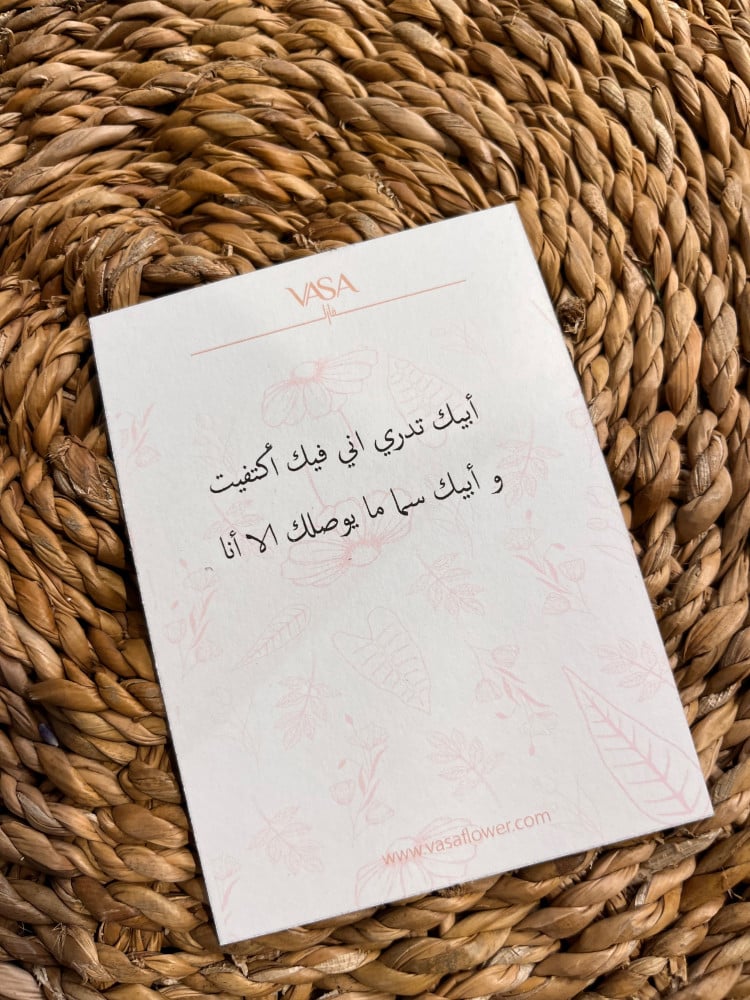 VASA
ڤازا
أبيك تدري اني فيك أكتفيت
و أبيك سما ما يوصلك الا أنا
www.vasaflower.com